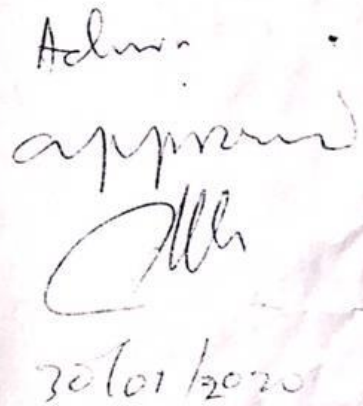 Admin
approved
30/01/2020